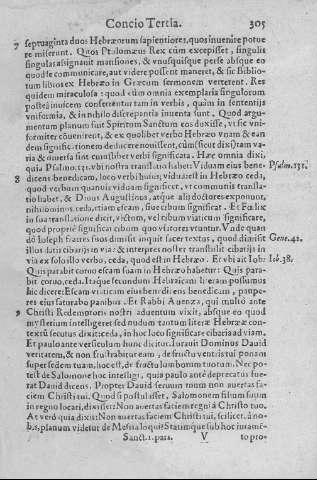 Concio Tertia. 305
7 septuaginta duos Hebræorum sapientiores, quos inuenire potue
re miserunt. Quos Ptolomæus Rex cùm excepisset, singulis
singulas assignauit mansiones, & vnusquisque per se absque eo
quod se communicare, aut videre possent maneret, & sic Biblio-
tum libros ex Hebræo in Græcum sermonem verterent. Res
quidem miraculosa: quod cùm omnia exemplaria singulorum
postea inuicem conferrentur tam in verbis, quàm in sententijs
vniformia, & in nihilo discrepantia inuenta sunt. Quod argu-
mentum planum fuit Spiritum Sanctum eos duxisse, vt sic vni-
formiter conuenirent, & ex quolibet verbo Hebræo vnam & ean
dem significationem deducere nouissent, cùm sicut dixi tam va-
ria & diuersa sint cuiuslibet verbi significata. Hæc omnia dixi,
quia Psalmo. 131. vbi nostra translatio habet: Viduam eius bene- Psalm. 131.
8 dicens benedicam, loco verbi huius, viduā est in Hebræo ceda,
quod verbum quamuis viduam significat, vt communis transla-
tio habet, & Diuus Augustinus, atque alij doctores exponunt,
nihilominus ceda, etiam escam, siue cibum significat. Et Fœlix
in sua translatione dicit, victum, vel cibum viaticum significare,
quod propriè significat cibum quo viatores vtuntur. Vnde quan
dò Ioseph fratres suos dimisit inquit sacer textus, quod dimisit Gene. 42.
illos datis cibarijs in via: & interpres noster transtulit cibarijs in
via ex solo illo verbo, ceda, quod est in Hebræo. Et vbi ait Iob: Iob. 38.
Quis parabit coruo escam suam in Hebræo habetur: Quis para-
bit coruo, ceda. Itaque secundum Hebraicam literam possumus
hic dicere: Escam viaticum eius benedicens benedicam, paupe-
res eius saturabo panibus. Et Rabbi Auenza, qui multò ante
9 Christi Redemptoris nostri aduentum vixit, absque eo quod
mysterium intelligeret sed nudum tantum literæ Hebrææ con-
textū secutus dixit: ceda, in hoc loco significare cibaria ad viam.
Et paulo ante versiculum hunc dicitur. Iurauit Dominus Dauid
veritatem, & non frustrabitur eam, de fructu ventris tui ponam
super sedem tuam, hoc est, de fructu lumborum tuorum. Nec po-
test de Salomone hoc intelligi, quia paulò antè deprecatus fue-
rat Dauid dicens. Propter Dauid seruum tuum non auertas fa-
ciem Christi tui. Quod si postulasset, Salomonem filium suum
in regno locari, dixisset: Non auertas faciem regni à Christo tuo.
At verò quia dixit: Non auertas faciem Christi tui, scilicet, à no-
bis, planum videtur de Messia loqui: Statimque sub hoc iuramē-
Sanct. 1. para. V to pro-